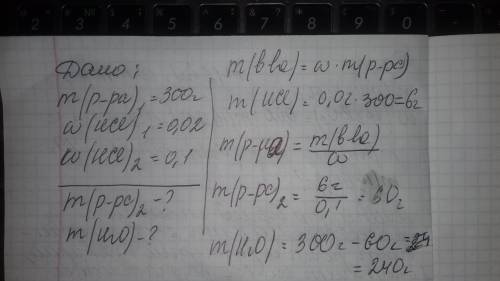 2 3 4 5 6 7 8 9 0
Дано:
m(р-ра)₁ = 300г
ω(HCl)₁ = 0,02
ω(HCl)₂ = 0,1
m(р-ра)₂ - ?
m(H₂O) - ?
m(в-ва) = ω · m(р-ра)
m(HCl) = 0,02 · 300 = 6г
m(р-ра) = m(в-ва) / ω
m(р-ра)₂ = 6г / 0,1 = 60г
m(H₂O) = 300г - 60г =
= 240г